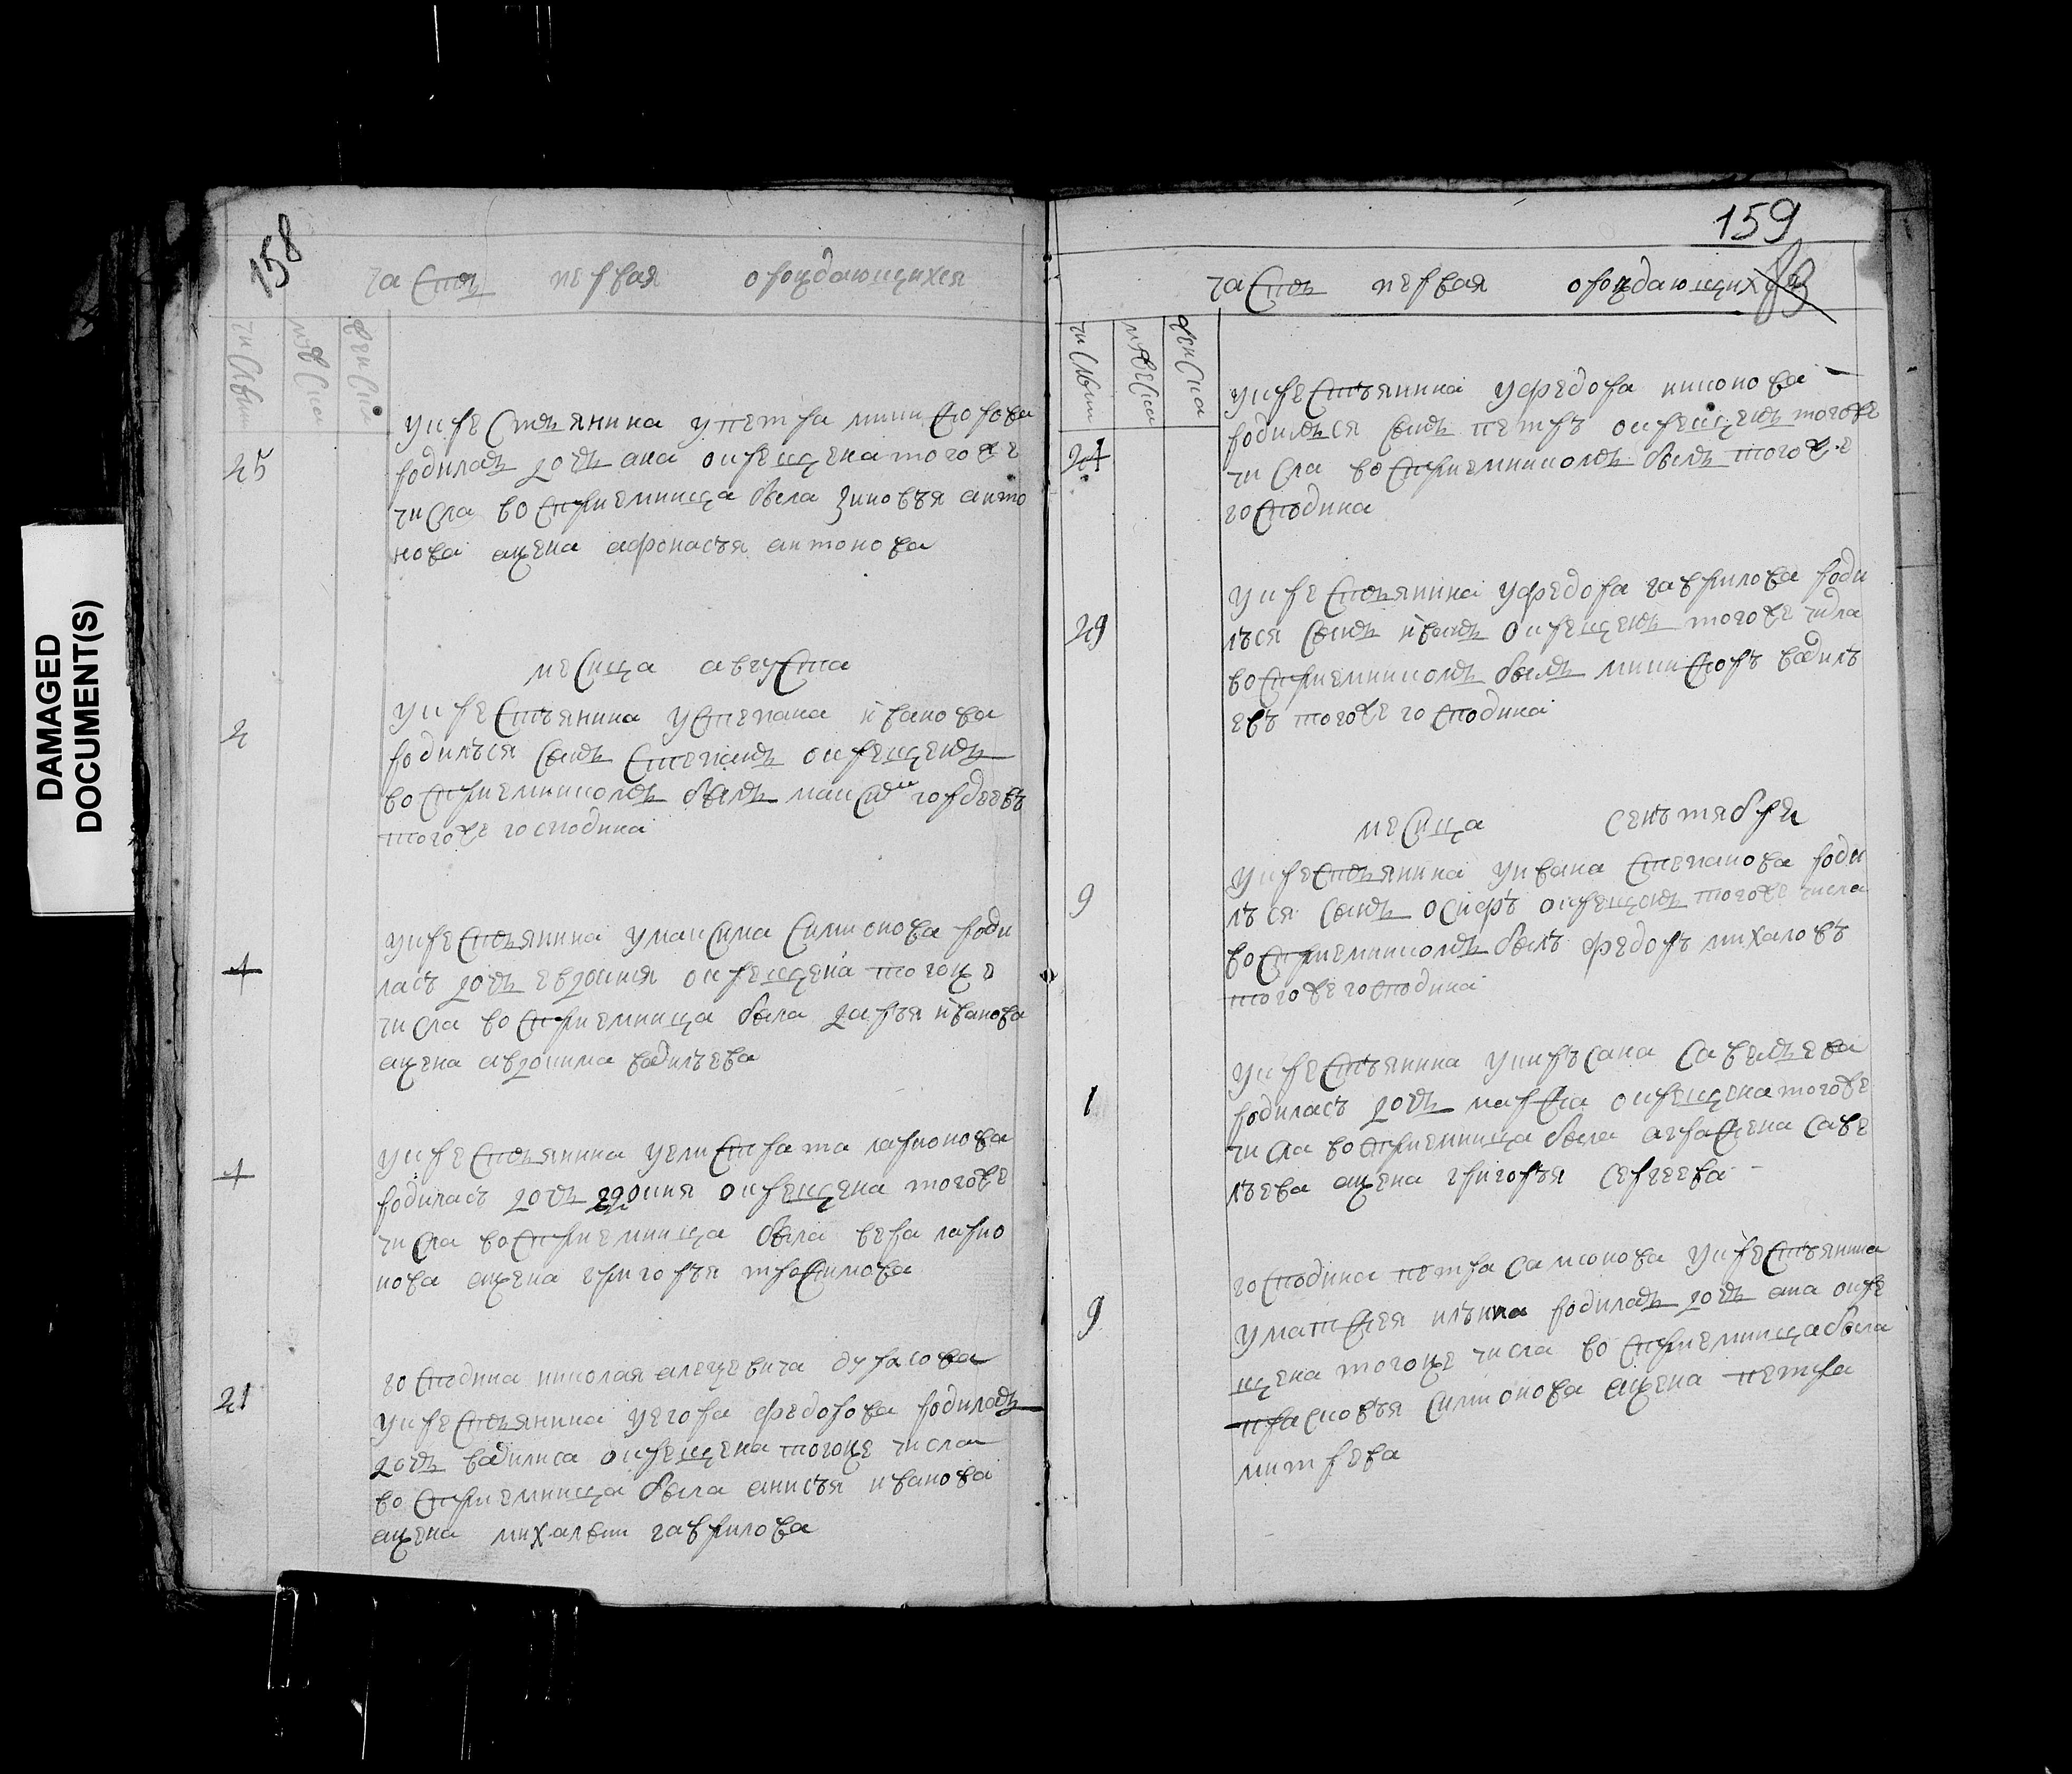 DAMAGED
DOCUMENT(S)
158
часть первая о рождающихся
числы
мужеска
женска
25
у крестьянина у петра никифорова
родилась дочь ана окрещена того же
числа восприемница была зиновья анто
нова жена афонасья антонова
месица августа
2
у крестьянина у степана иванова
родилъся сынъ степанъ окрещенъ
восприемникомъ былъ максимъ гордеевъ
того же господина
4
у крестьянина у максима симионова роди
лась дочь евдокия окрещена того же
числа восприемница была дарья иванова
жена авдокима васильева
4
у крестьянина у елистрата ларионова
родилась дочь едокия окрещена того же
числа восприемница была вера ларио
нова жена григорья трофимова
21
господина николая алецеевича дурасова
у крестьянина у егора федорова родилась
дочь василиса окрещена того же числа
восприемница была анисья иванова
жена михайлы гаврилова
159
часть первая о рождающихся
числы
мужеска
женска
24
у крестьянина у федора никонова
родилься сынъ петръ окрещенъ того же
числа восприемникомъ былъ того же
господина
29
у крестьянина у федора гаврилова роди
лъся сынъ иванъ окрещенъ того же числа
восприемникомъ былъ никифоръ василь
евъ того же господина
месица сенътября
9
у крестьянина у ивана степанова роди
лъся сынъ осифъ окрещенъ того же числа
восприемникомъ былъ федоръ михаловъ
того же господина
1
у крестьянина у кирьсана савельева
родилась дочь марфа окрещена того же
числа восприемница была аграфена саве
льева жена григорья сергеева
9
господина петра самсонова у крестьянина
у матфея ильина родилась дочь ана окре
щена того же числа восприемница была
прасковья симионова жена петра
митрева